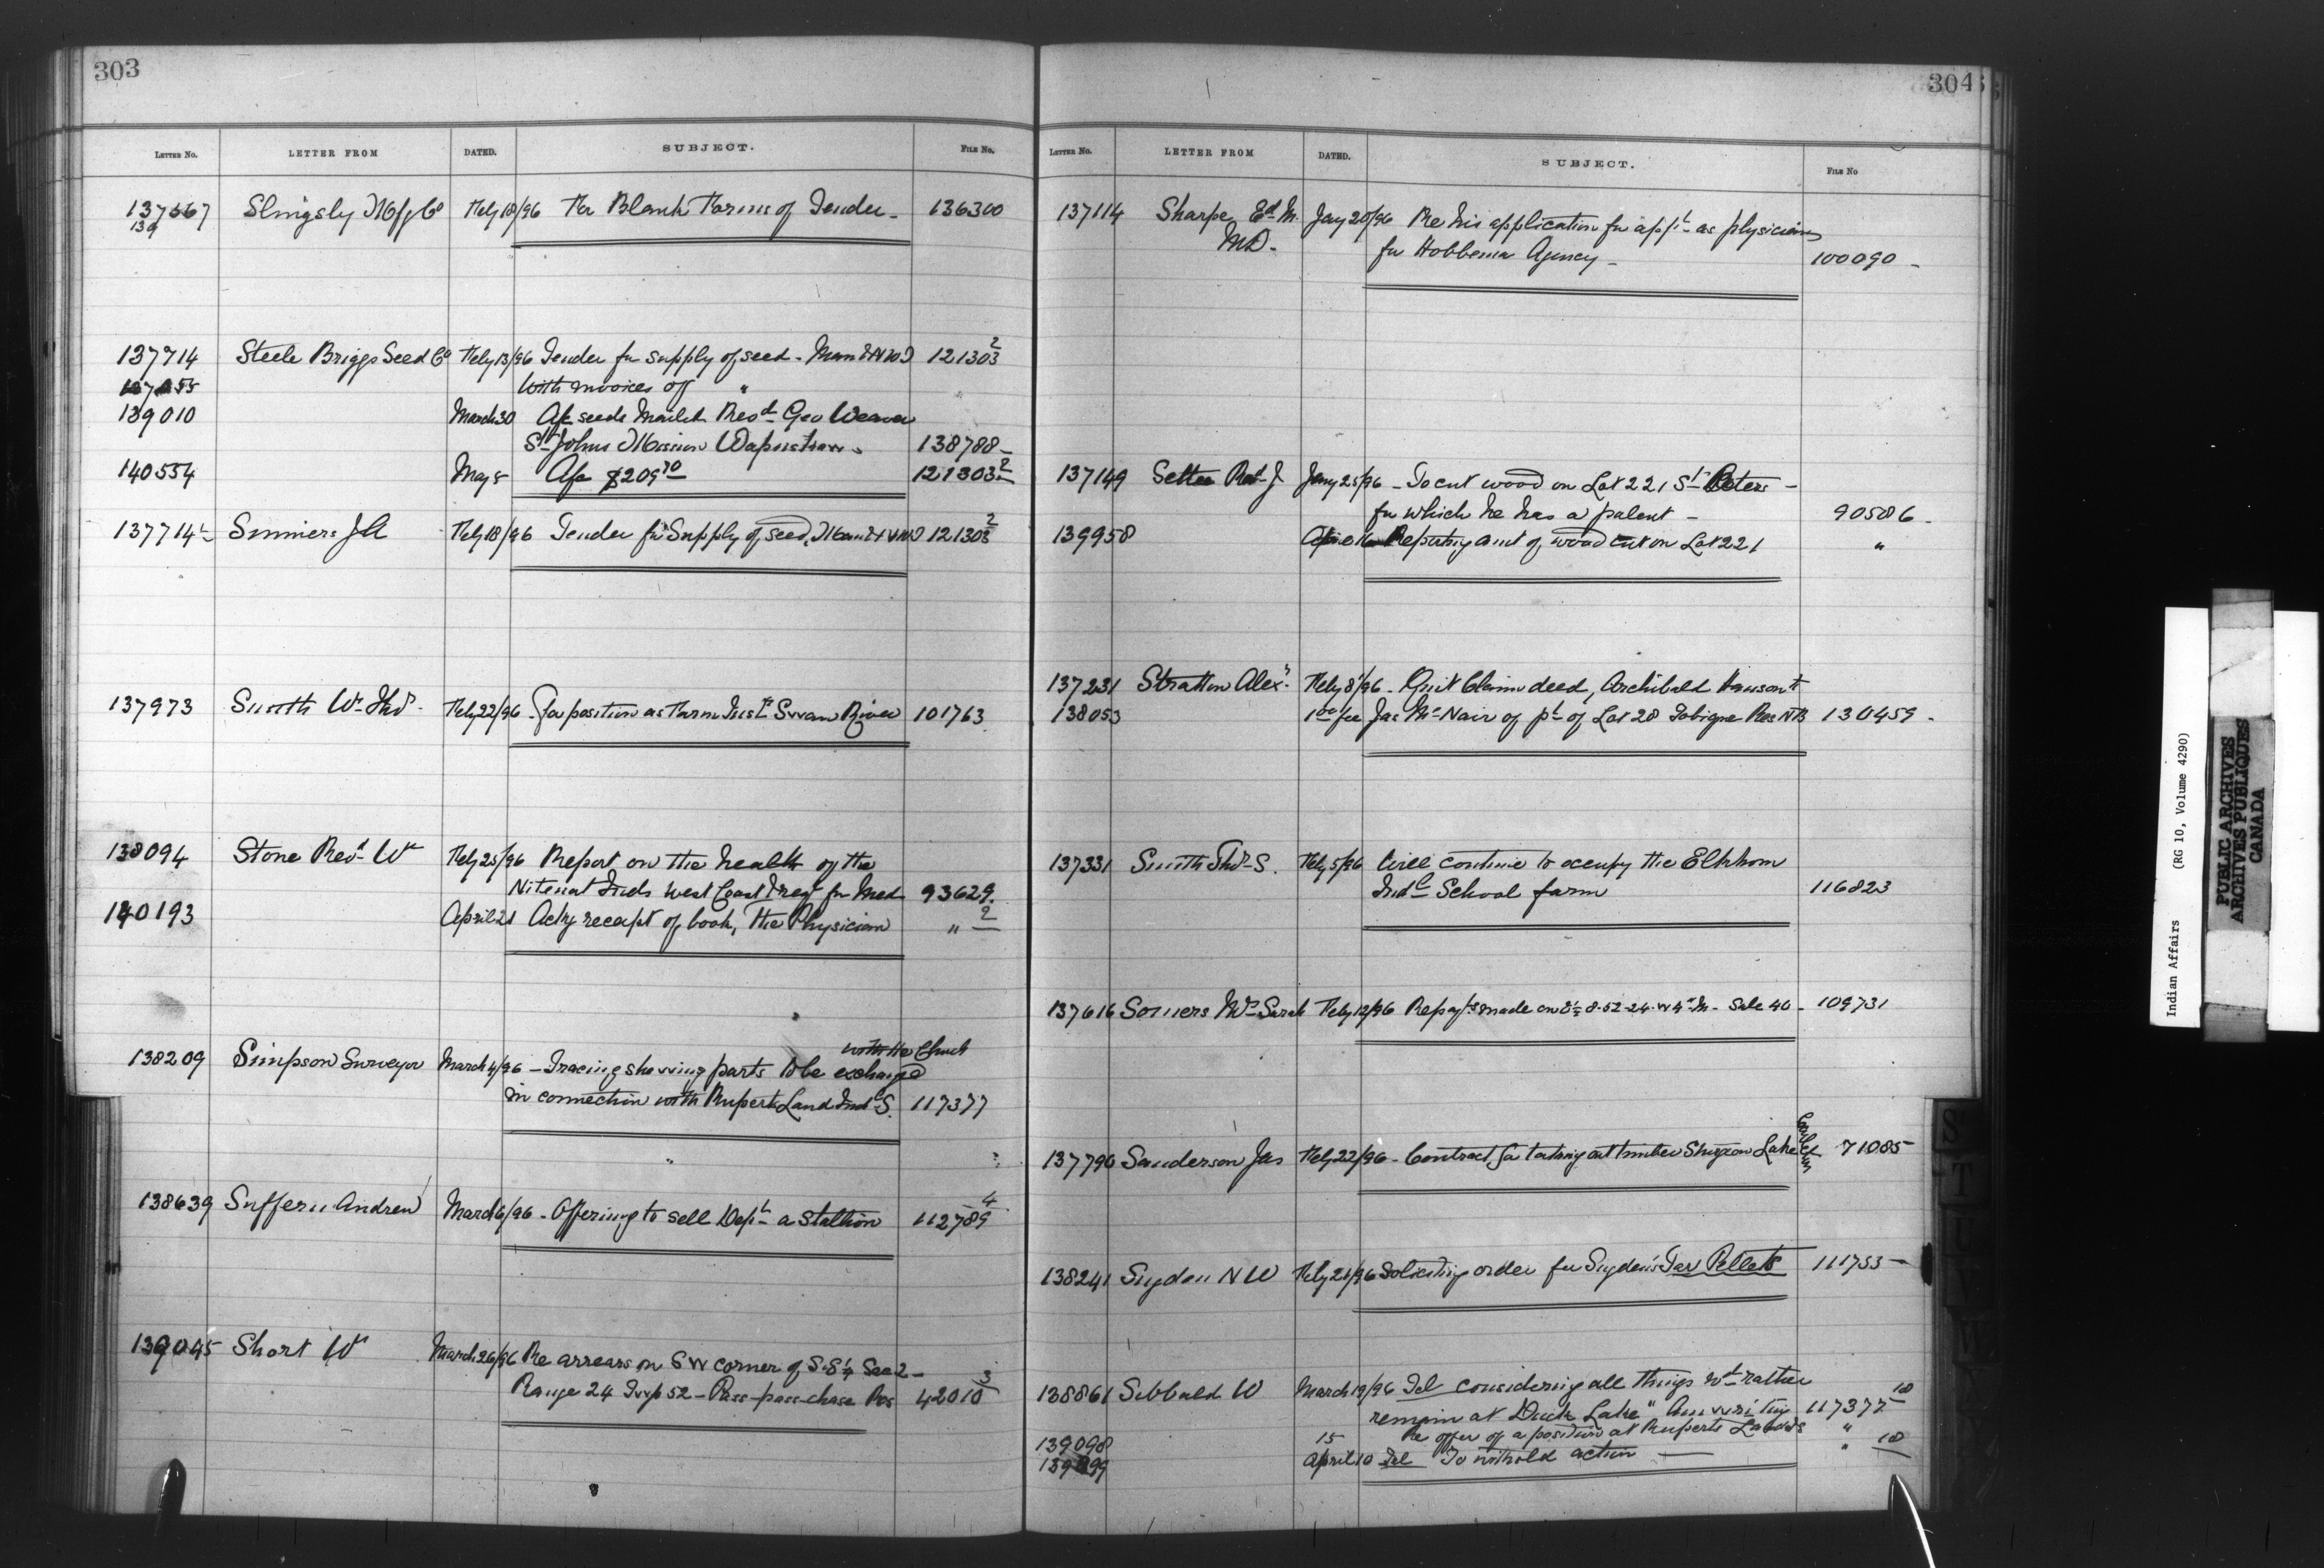 303
LETTER No. LETTER FROM DATED. SUBJECT. FILE No.
137567 Slingsby Mfg Co Feby 18/96 For Blank Forms of Tender - 136300
139
137714 Steele Briggs Seed Co Feby 13/96 Tender for supply of seed - Man & NWT 121303 2
With invoices of "
139010 March 30 Afc seeds Mailed Revd Geo Weaver
St Johns Mission Wapuskaw - 138788 -
140554 May 5 Afc $209 70 121303 2
137714 1/2 Simmers J A Feby 18/96 Tender for Supply of seed, Man & NWT 121303 2
137973 Smith Wm Thos - Feby 22/96 - For position as Farm Instr Swan River 101763
138094 Stone Revd Wm Feby 25/96 Report on the health of the
Nitenat Inds West Coast & reqt for Med 93629
140193 April 21 Ackg receipt of book, The Physician " 2
with the Church
138209 Simpson Surveyor March 4/96 - Tracing showing parts to be exchanged
in connection with Ruperts Land Indl S. 117377
138639 Suffern Andrew March 6/96 - Offering to sell Dept a stallion 112789 4
139045 Short Wm March 26/96 Re arrears on SW corner of S.E 1/4 Sec 2 -
Range 24 Twp 52 - Pass-pass-chase Res 42010 3
304
LETTER No. LETTER FROM DATED. SUBJECT. FILE No
137114 Sharpe Ed M. Jany 20/96 Re his application for appt as physician
MD - for Hobbema Agency - 100090 -
137149 Settee Revd J Jany 25/96 - To cut wood on Lot 221 St Peters -
for which he has a patent - 90586 -
139958 April 16 Reporting amt of wood cut on Lot 221 "
137231 Stratton Alexr Feby 8/96 - Quit Claim deed, Archibald Hanson to
138053 1 00 fee Jas McNair of pt of Lot 28 Tobique Res NB 130459 -
137331 Smith Thos S. Feby 5/96 Will continue to occupy the Elkhorn
Indl School farm 116823
137616 Somers Mrs Sarah Feby 12/96 Re payts made on E 1/2 8-52-24-W 4th M - Sale 40 - 109731
137790 Sanderson Jas Feby 22/96 - Contract for taking out timber Sturgeon Lake 71085
138241 Sugden N W Feby 21/96 Soliciting order for Sugden's Tar Pellets 111753 -
138861 Sibbald W March 19/96 Tel considering all things wd rather
remain at Duck Lake " Am writing 117377 10
139098 15 Re offer of a position at Ruperts Land IS "
April 10 Tel To withold action - " 10
S
T
U
V
W
Indian Affairs (RG 10, Volume 4290)
PUBLIC ARCHIVES
ARCHIVES PUBLIQUES
CANADA